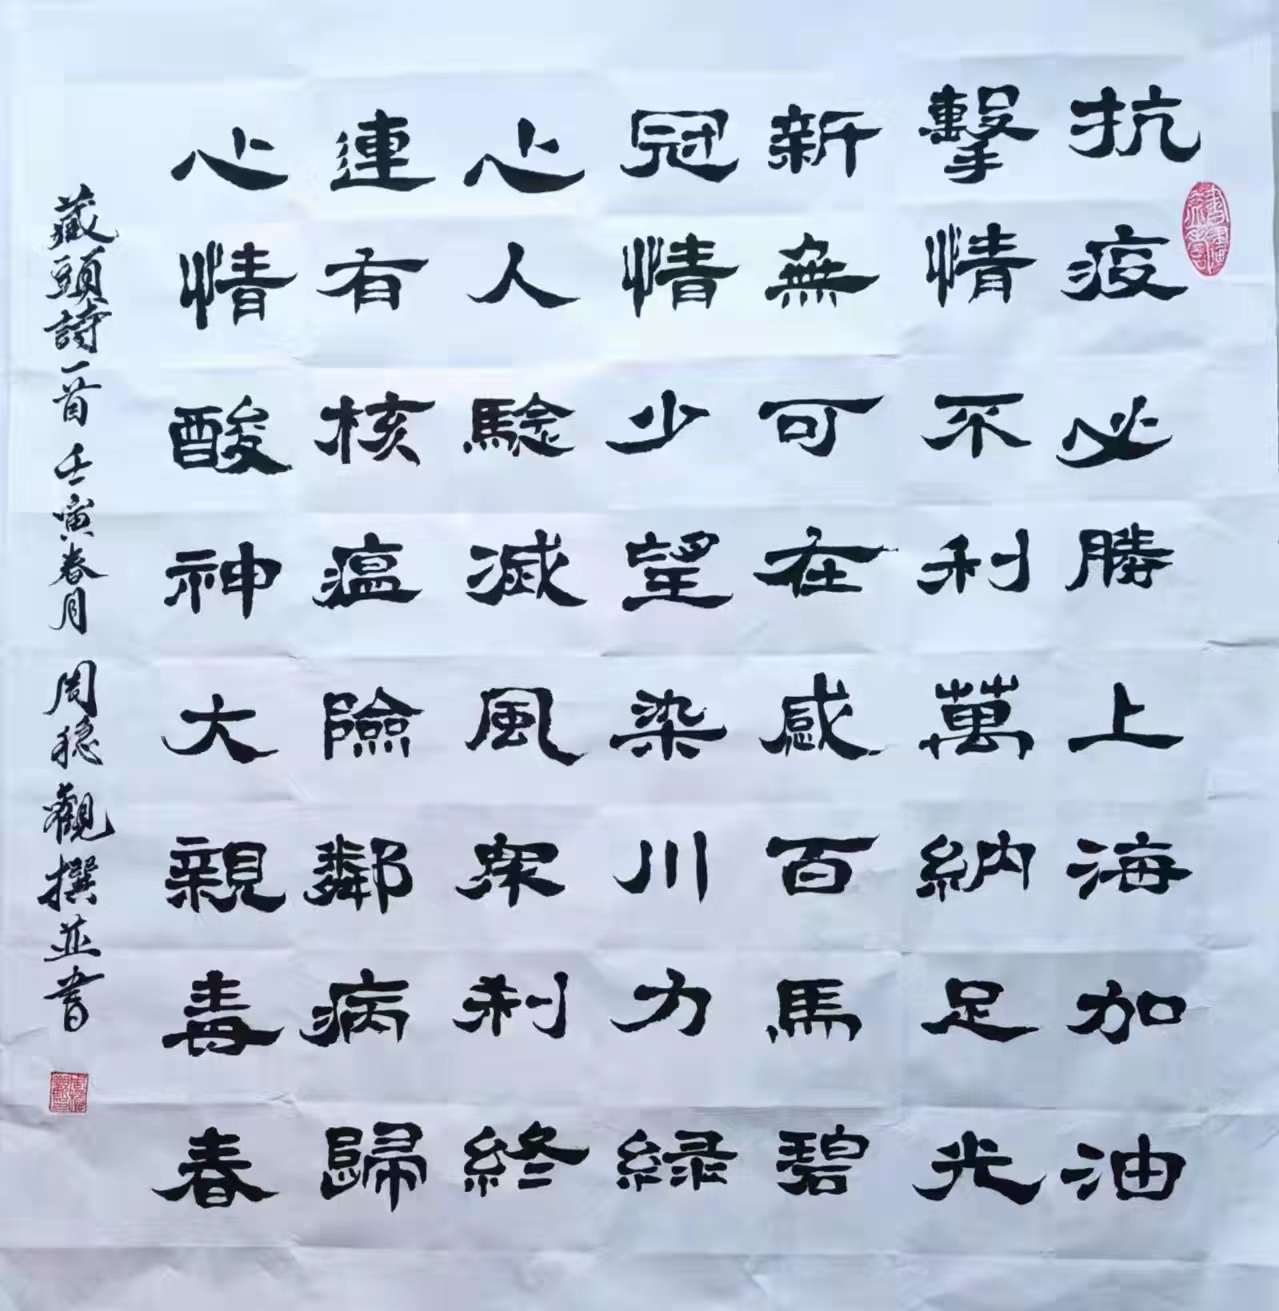 抗疫必勝上海加油
擊情不利萬納足光
新無可在感百馬碧
冠情少望染川力緑
心人騐滅風深刹終
連有核瘟險鄰病歸
心情酸神大親毒春
藏頭詩一首 壬寅春月 周穩觀撰並書